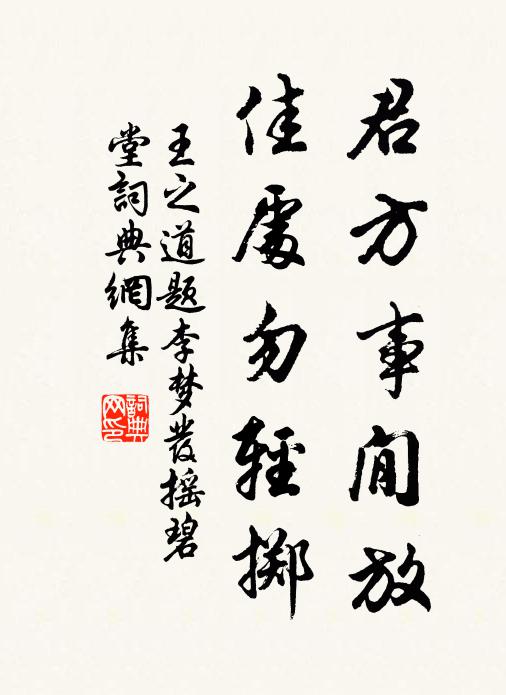 君方事閒放
佳處勿輕擲
王之道題李梦发摇碧
堂詞典網集
詞典网印